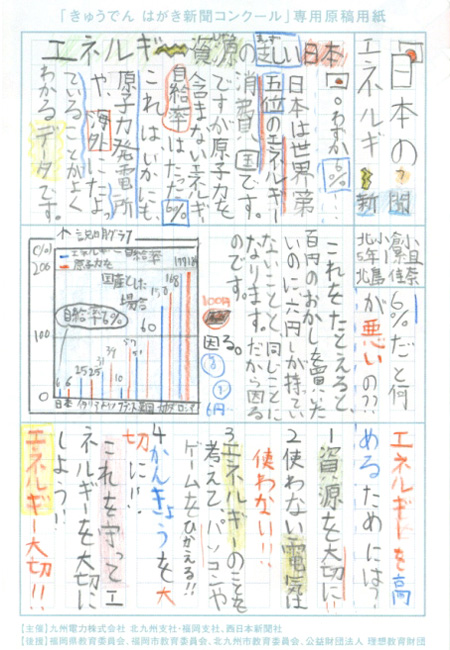 「きゅうでん はがき新聞コンクール」専用原稿用紙
日本の
エネルギー新聞
北小 創刊
5年1組
北島 佳奈
エネルギー資源の乏しい日本
わずか6%…
日本は世界第
五位のエネルギー
消費国です。
ですが原子力を
含まないエネルギー
自給率はたった6%
これはいかにも
原子力発電所
や、海外にたよっ
ていることがよく
わかるデータです。
6%だと何
が悪いの??
これをたとえると、
百円のおかしを買いた
いのに六円しか持ってい
ないことと同じことに
なります。だから困る
のです。
100円
困る。
6円
説明グラフ
(%)
206
100
0
エネルギー自給率
原子力を
国産とした
場合
自給率6%
1991年
6
6
25
25
10
51
60
168
日本
イタリア
ドイツ
フランス
英国
カナダ
ロシア
エネルギーを高
めるためには?
1資源を大切に!!
2使わない電気は
使わない!!
3エネルギーのことを
考えて、パソコンや
ゲームをひかえる!!
4かんきょうを大
切に!!
これを守ってエ
ネルギーを大切に
しよう!!
エネルギー大切!!
【主催】九州電力株式会社 北九州支社・福岡支社、西日本新聞社
【後援】福岡県教育委員会、福岡市教育委員会、北九州市教育委員会、公益財団法人 理想教育財団